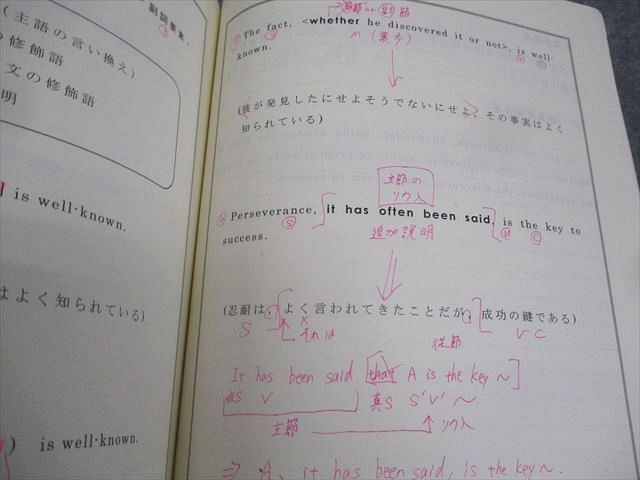 副詞要素.
(主語の言い換え)
の修飾語
文の修飾語
明
is well-known.
はよく知られている)
) is well-known.
節 or 副 節
The fact, <whether he discovered it or not>, is well-
S
V C
known.
M (譲歩)
(彼が発見したにせよそうでないにせよ, その事実はよく
知られている)
主節の
ソウ入
Perseverance, it has often been said, is the key to
S
追加説明
V C
success.
(忍耐は, よく言われてきたことだが, 成功の鍵である)
S
× それは
V C
従節
It has been said that A is the key ~
V
真S S' V' ~
主節
ソウ入
⇒ A, it has been said, is the key ~.